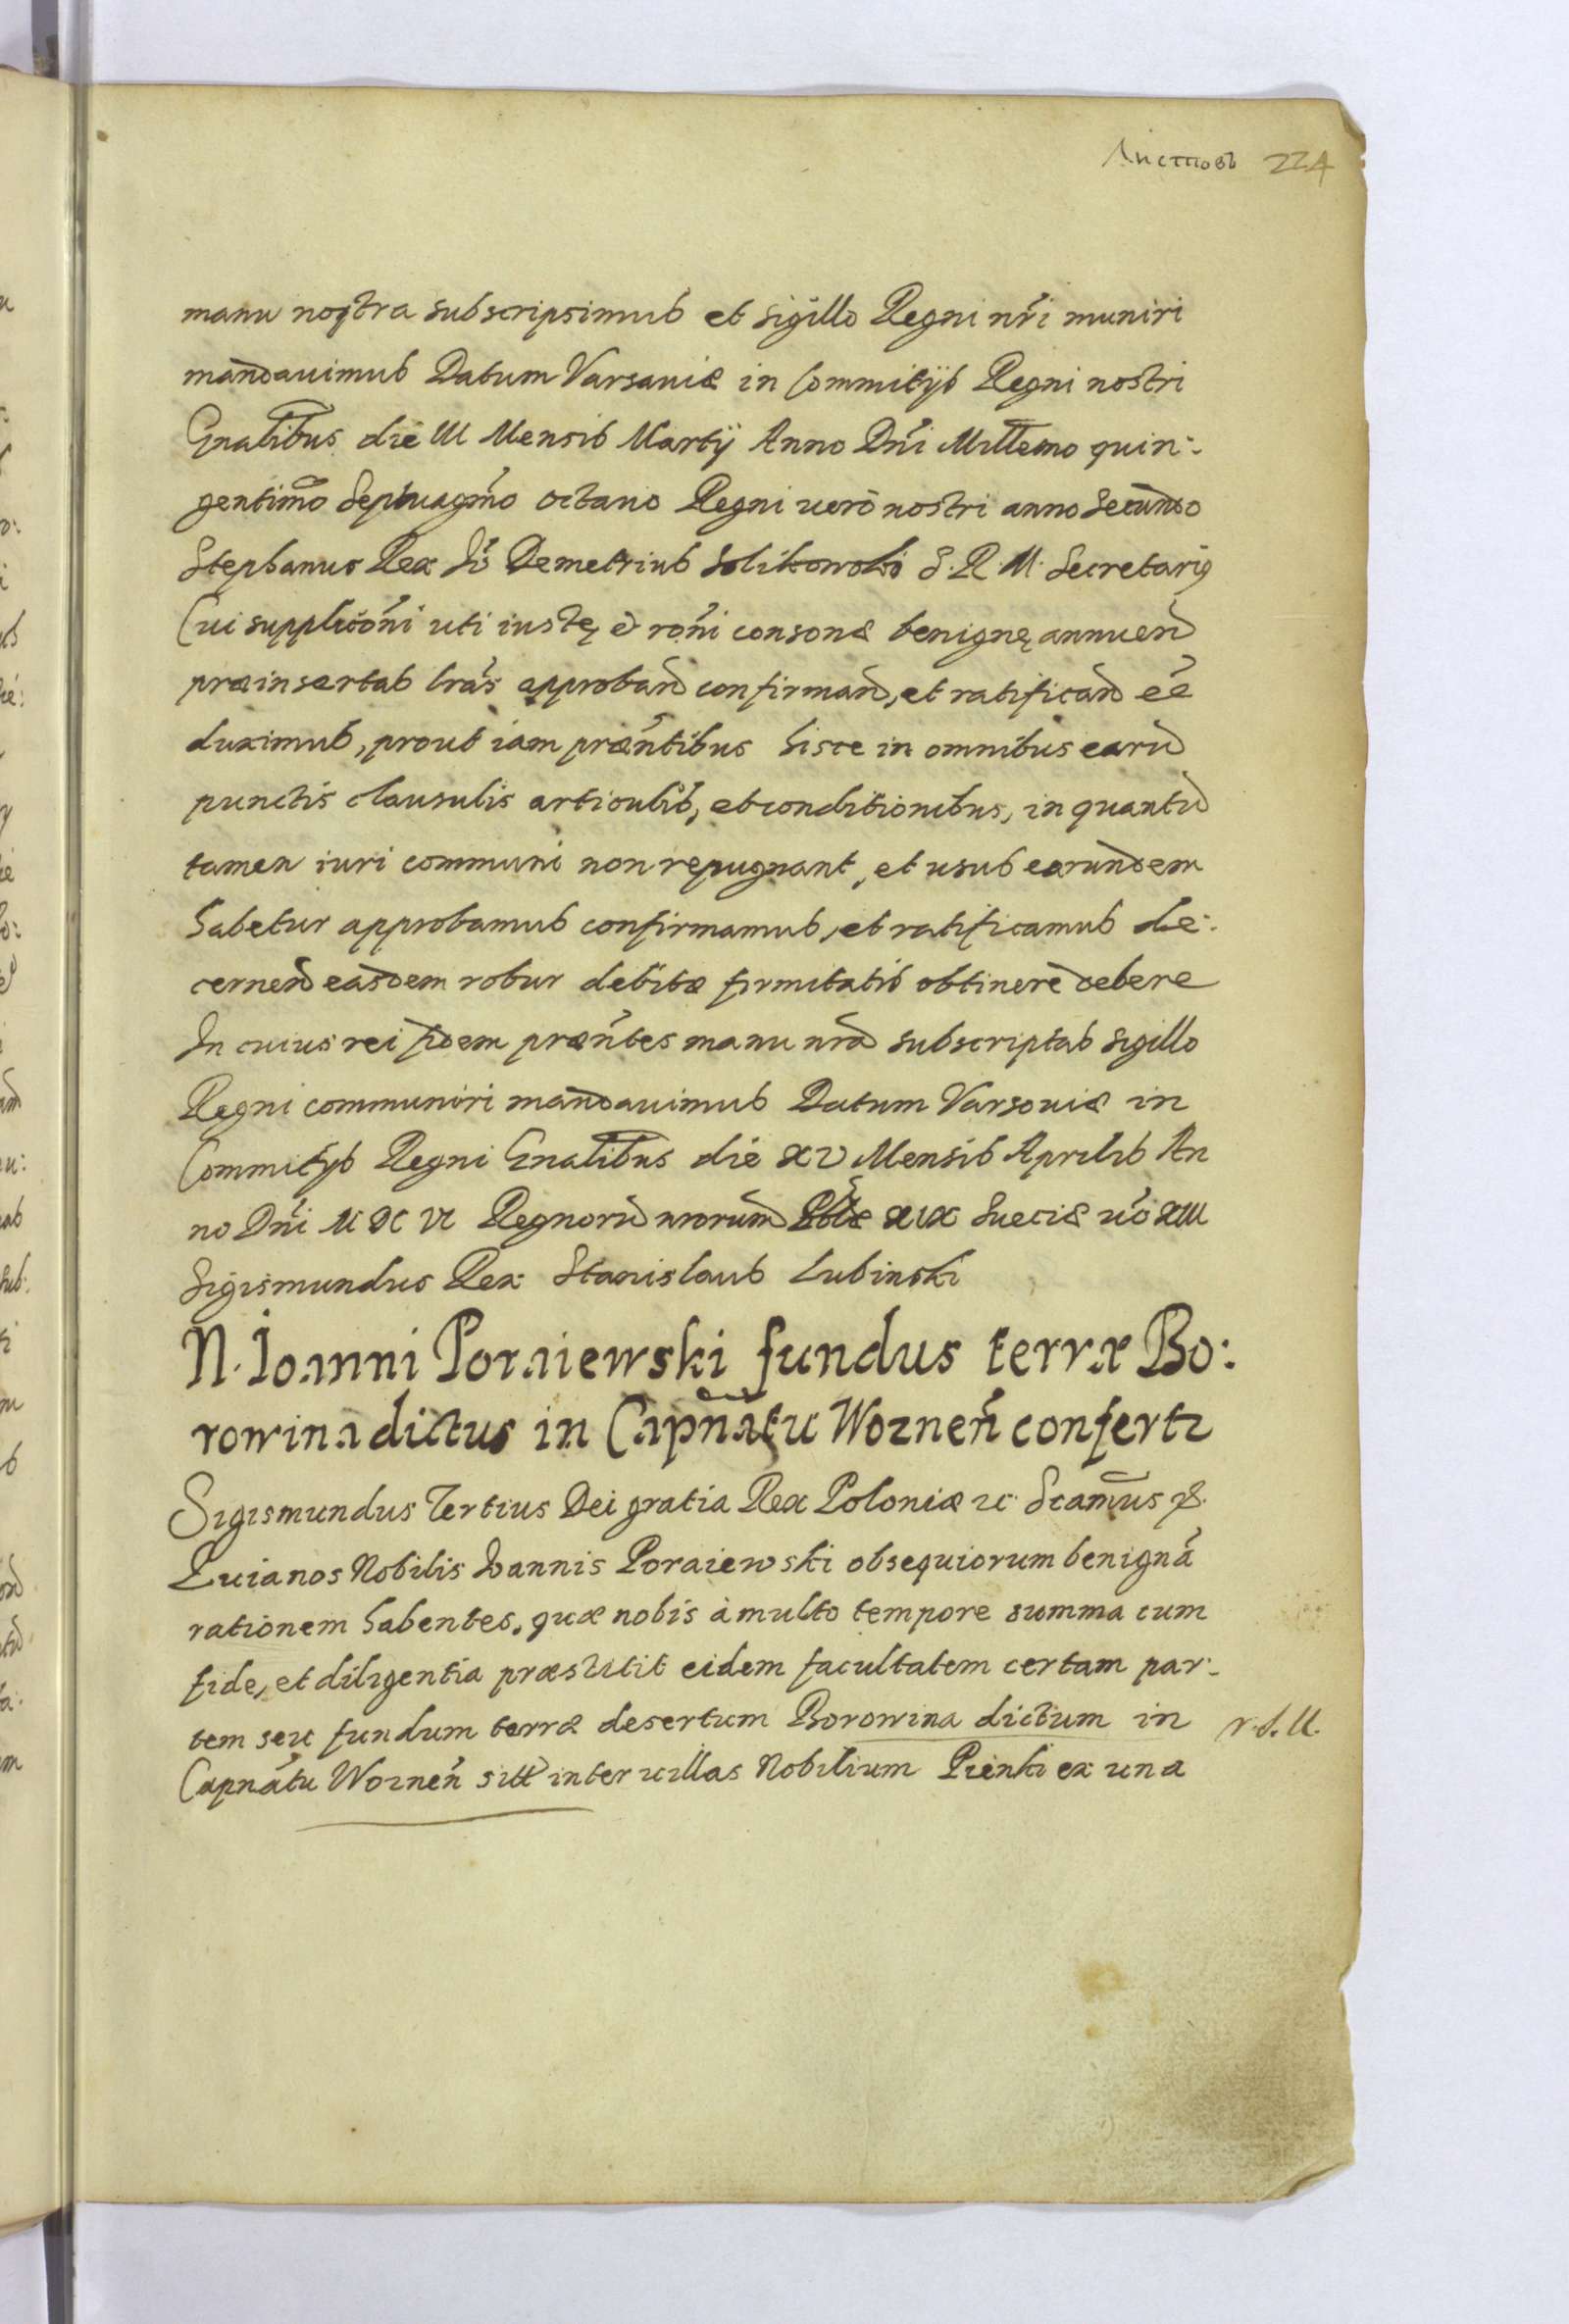 Листовъ 224
manu nostra subscripsimus et sigillo Regni nr̃i muniri
mandauimus Datum Varsauiæ in Commitijs Regni nostri
Gnalibus die III Mensis Martij Anno Dni Millemo quin:
gentimo Septuagmo octauo Regni uero nostri anno Secundo
Stephanus Rex Io Demetrius Solikowski S. R. M. Secretarig
Cui suppliconi uti iustę & roni consonæ benignę annuend
præinsertas lras approband confirmand, et ratificand eē
duximus, prout iam præntibus hisce in omnibus earu
punctis clausulis articulis, et conditionibus, in quantu
tamen iuri communi non repugnant, et usus earundem
habetur approbamus confirmamus, et ratificamus de:
cernend easdem robur debitæ firmitatis obtinere debere
In cuius rei fidem præntes manu nra subscriptas sigillo
Regni communiri mandauimus Datum Varsouiæ in
Commitijs Regni Gnalibus die XV Mensis Aprilis An
no Dni M DC VI Regnoru nrorum Poloæ XIX Sueciæ uo XIII
Sigismundus Rex Stanislaus Lubinski
N. Ioanni Poraiewski fundus terræ Bo:
rowina dictus in Capnatu Woznen confertr
Sigismundus Tertius Dei gratia Rex Poloniæ &c
nos Nobilis Ioannis Poraiewski obsequiorum benigna
rationem habentes, quæ nobis à multo tempore summa cum
fide, et diligentia præstitit eidem facultatem certam par:
tem seu fundum terræ desertum Borowina dictum in
Capnatu Woznen sitt inter uillas Nobilium Pienki ex una